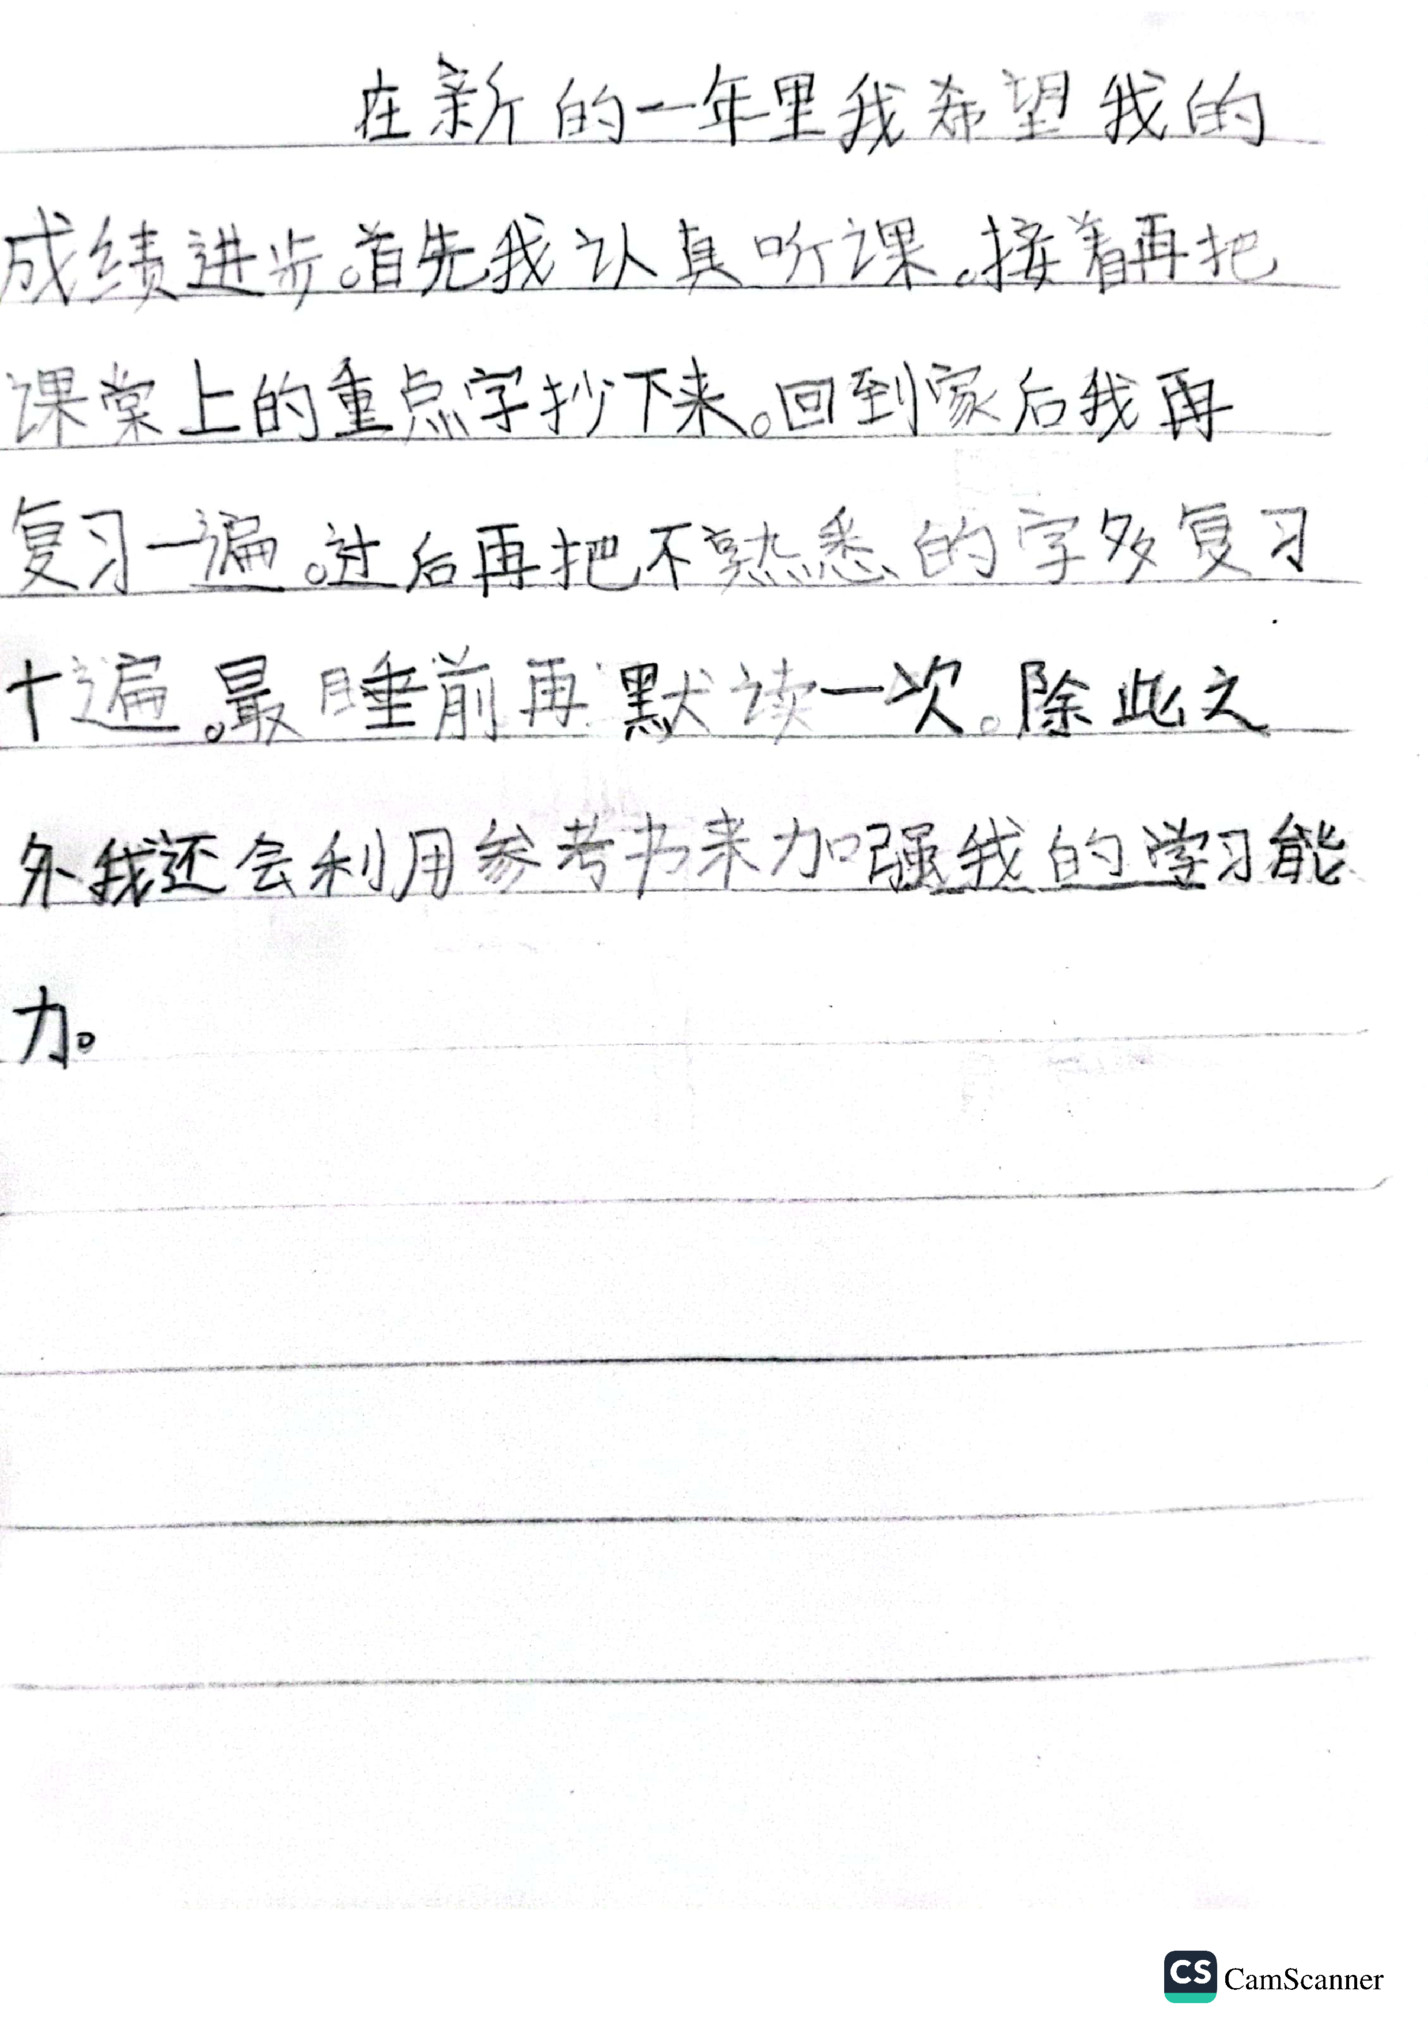 在新的一年里我希望我的
成绩进步。首先我认真听课。接着再把
课堂上的重点字抄下来。回到家后我再
复习一遍。过后再把不熟悉的字多复习
十遍。最睡前再默读一次。除此之
外我还会利用参考书来加强我的学习能
力。
CS CamScanner